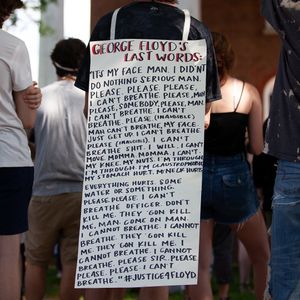 GEORGE FLOYD'S
LAST WORDS:
"ITS MY FACE MAN. I DIDN'T
DO NOTHING SERIOUS MAN.
PLEASE. PLEASE. PLEASE,
I CAN'T BREATHE. PLEASE, MAN.
PLEASE, SOMEBODY. PLEASE, MAN
I CAN'T BREATHE I CAN'T
BREATHE. PLEASE (INAUDIBLE)
MAN CAN'T BREATHE, MY FACE.
JUST GET UP. I CAN'T BREATHE
PLEASE (INAUDIBLE). I CAN'T
BREATHE SHIT. I WILL. I CAN'T
MOVE. MOMMA. MOMMA. I CAN'T.
MY KNEE. MY NUTS. I'M THROUGH
I'M THROUGH. I'M CLAUSTROPHOBIC
MY STOMACH HURT. MY NECK HURTS
EVERYTHING HURTS. SOME
WATER OR SOMETHING.
PLEASE. PLEASE. I CAN'T
BREATHE OFFICER. DON'T
KILL ME. THEY GON KILL
ME, MAN. COME ON MAN.
I CANNOT BREATHE. I CANNOT
BREATHE. THEY GON KILL
ME. THEY GON KILL ME. I
CAN'T BREATHE. I CANNOT
BREATHE. PLEASE SIR. PLEASE
PLEASE. PLEASE. I CAN'T
BREATHE." #JUSTICE4FLOYD